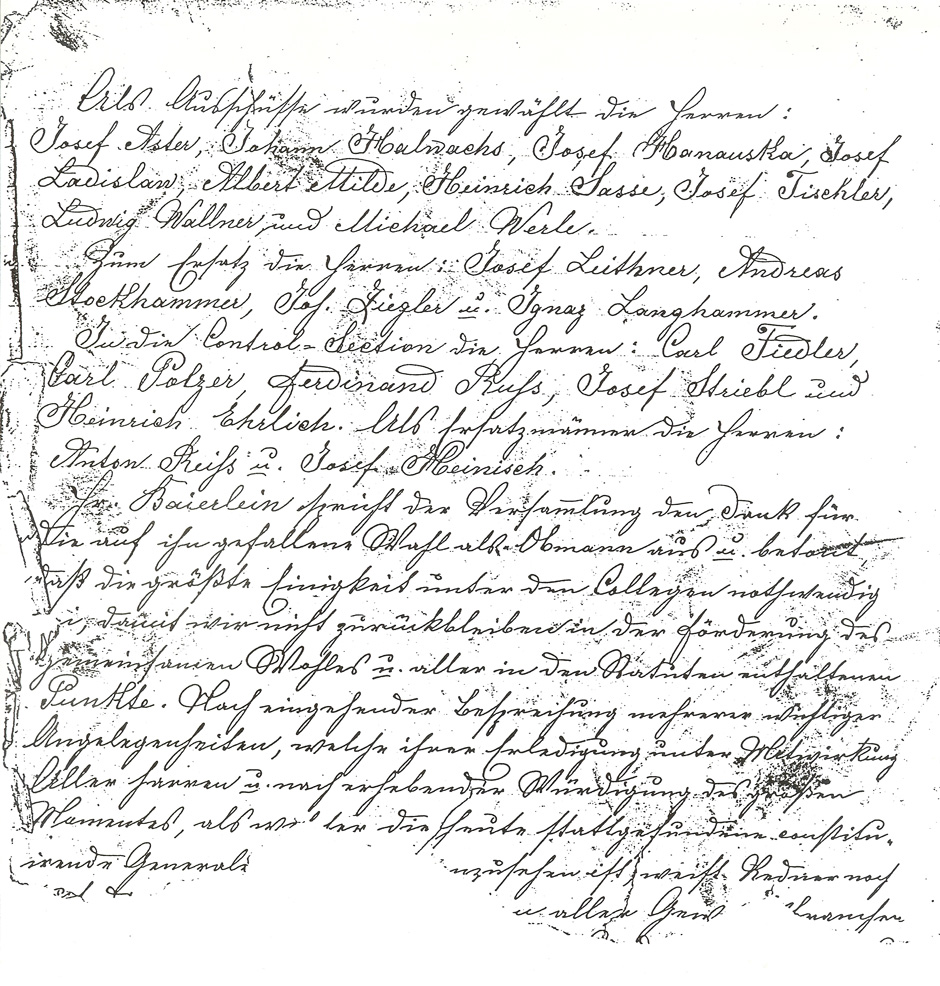 Als Ausschüsse wurden gewählt die Herren:
Josef Aster, Johann Halwachs, Josef Hanauska, Josef
Ladislaw, Albert Milde, Heinrich Sasse, Josef Tischler,
Ludwig Wallner, und Michael Werle.
Zum Ersatz die Herren: Josef Leithner, Andreas
Stockhammer, Joh. Ziegler u. Ignaz Langhammer.
In die Control-Section die Herren: Carl Fiedler,
Carl Polzer, Ferdinand Russ, Josef Striebl und
Heinrich Ehrlich. Als Ersatzmänner die Herren:
Anton Reiss u. Josef Heinisch.
Hr. Baierlein spricht der Versam̅lung den Dank für
die auf ihn gefallene Wahl als Obmann aus u. betont
daß die größte Einigkeit unter den Collegen nothwendig
i, damit wir nicht zurückbleiben in der Förderung des
gemeinsamen Wohles u. aller in den Statuten enthaltenen
Punkte. Nach eingehender Besprechung mehrerer wichtiger
Angelegenheiten, welche ihrer Erledigung unter Mitwirkung
Aller harren u. nach erhebender Würdigung des großen
Momentes, als die heute stattgefundene constitu-
irende Generalv nzusehen ist, weist Redner noch
aller Gew branchen